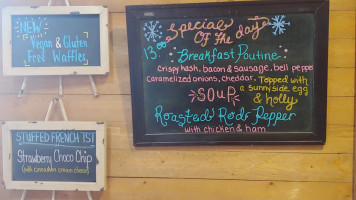 NEW
Vegan & Gluten
Free Waffles
STUFFED FRENCH TST
Strawberry Choco Chip
(with cannoli cream cheese)
Special
Of the day
13.00
Breakfast Poutine
Crispy hash, bacon & sausage, bell pepper
Caramelized onions, cheddar. Topped with
a sunnyside egg
& holly
SOUP
Roasted Red Pepper
with chicken & ham